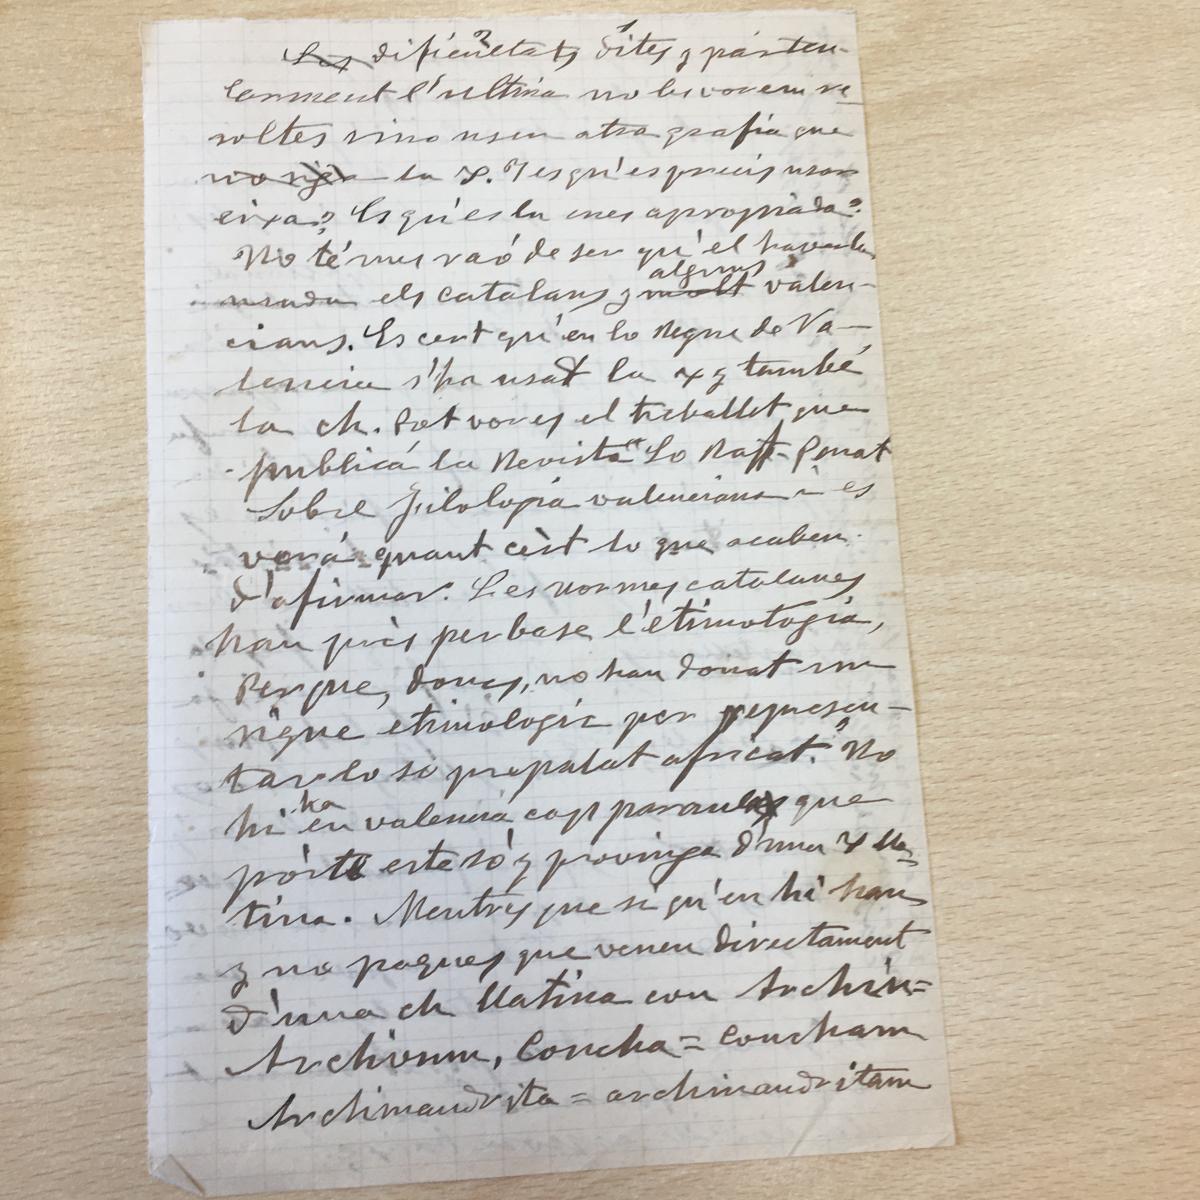 Les dificultats dites y particu-
larment l'ultima no les vorem re
soltes sino usem atra grafia que
no siga la x. ¿Y es qu'es precis usar
eixa? ¿Es qu'es la mes apropiada?
No té mes raó de ser qu'el haverla
usada els catalans y molt alguns valen-
cians. Es cert qu'en lo Regne de Va-
lencia s'ha usat la x y també
la ch. Pot vores el treballet que
publicá la Revista "Lo Rat-Penat
sobre filología valenciana i es
vorá quant cèrt lo que acabem
d'afirmar. Les normes catalanes
han près per base l'etimología,
Perque, doncs, no han donat un
signe etimologic per represen-
tar lo so prepalat africat? No
hi ha en valenciá cap paraula que
pòrte este só y provinga d'una x lla-
tina. Mentres que si qu'en hi han
y no poques que venen directament
d'una ch llatina com Archiu=
Archivum, Concha = concham
Archimandrita = archimandritam